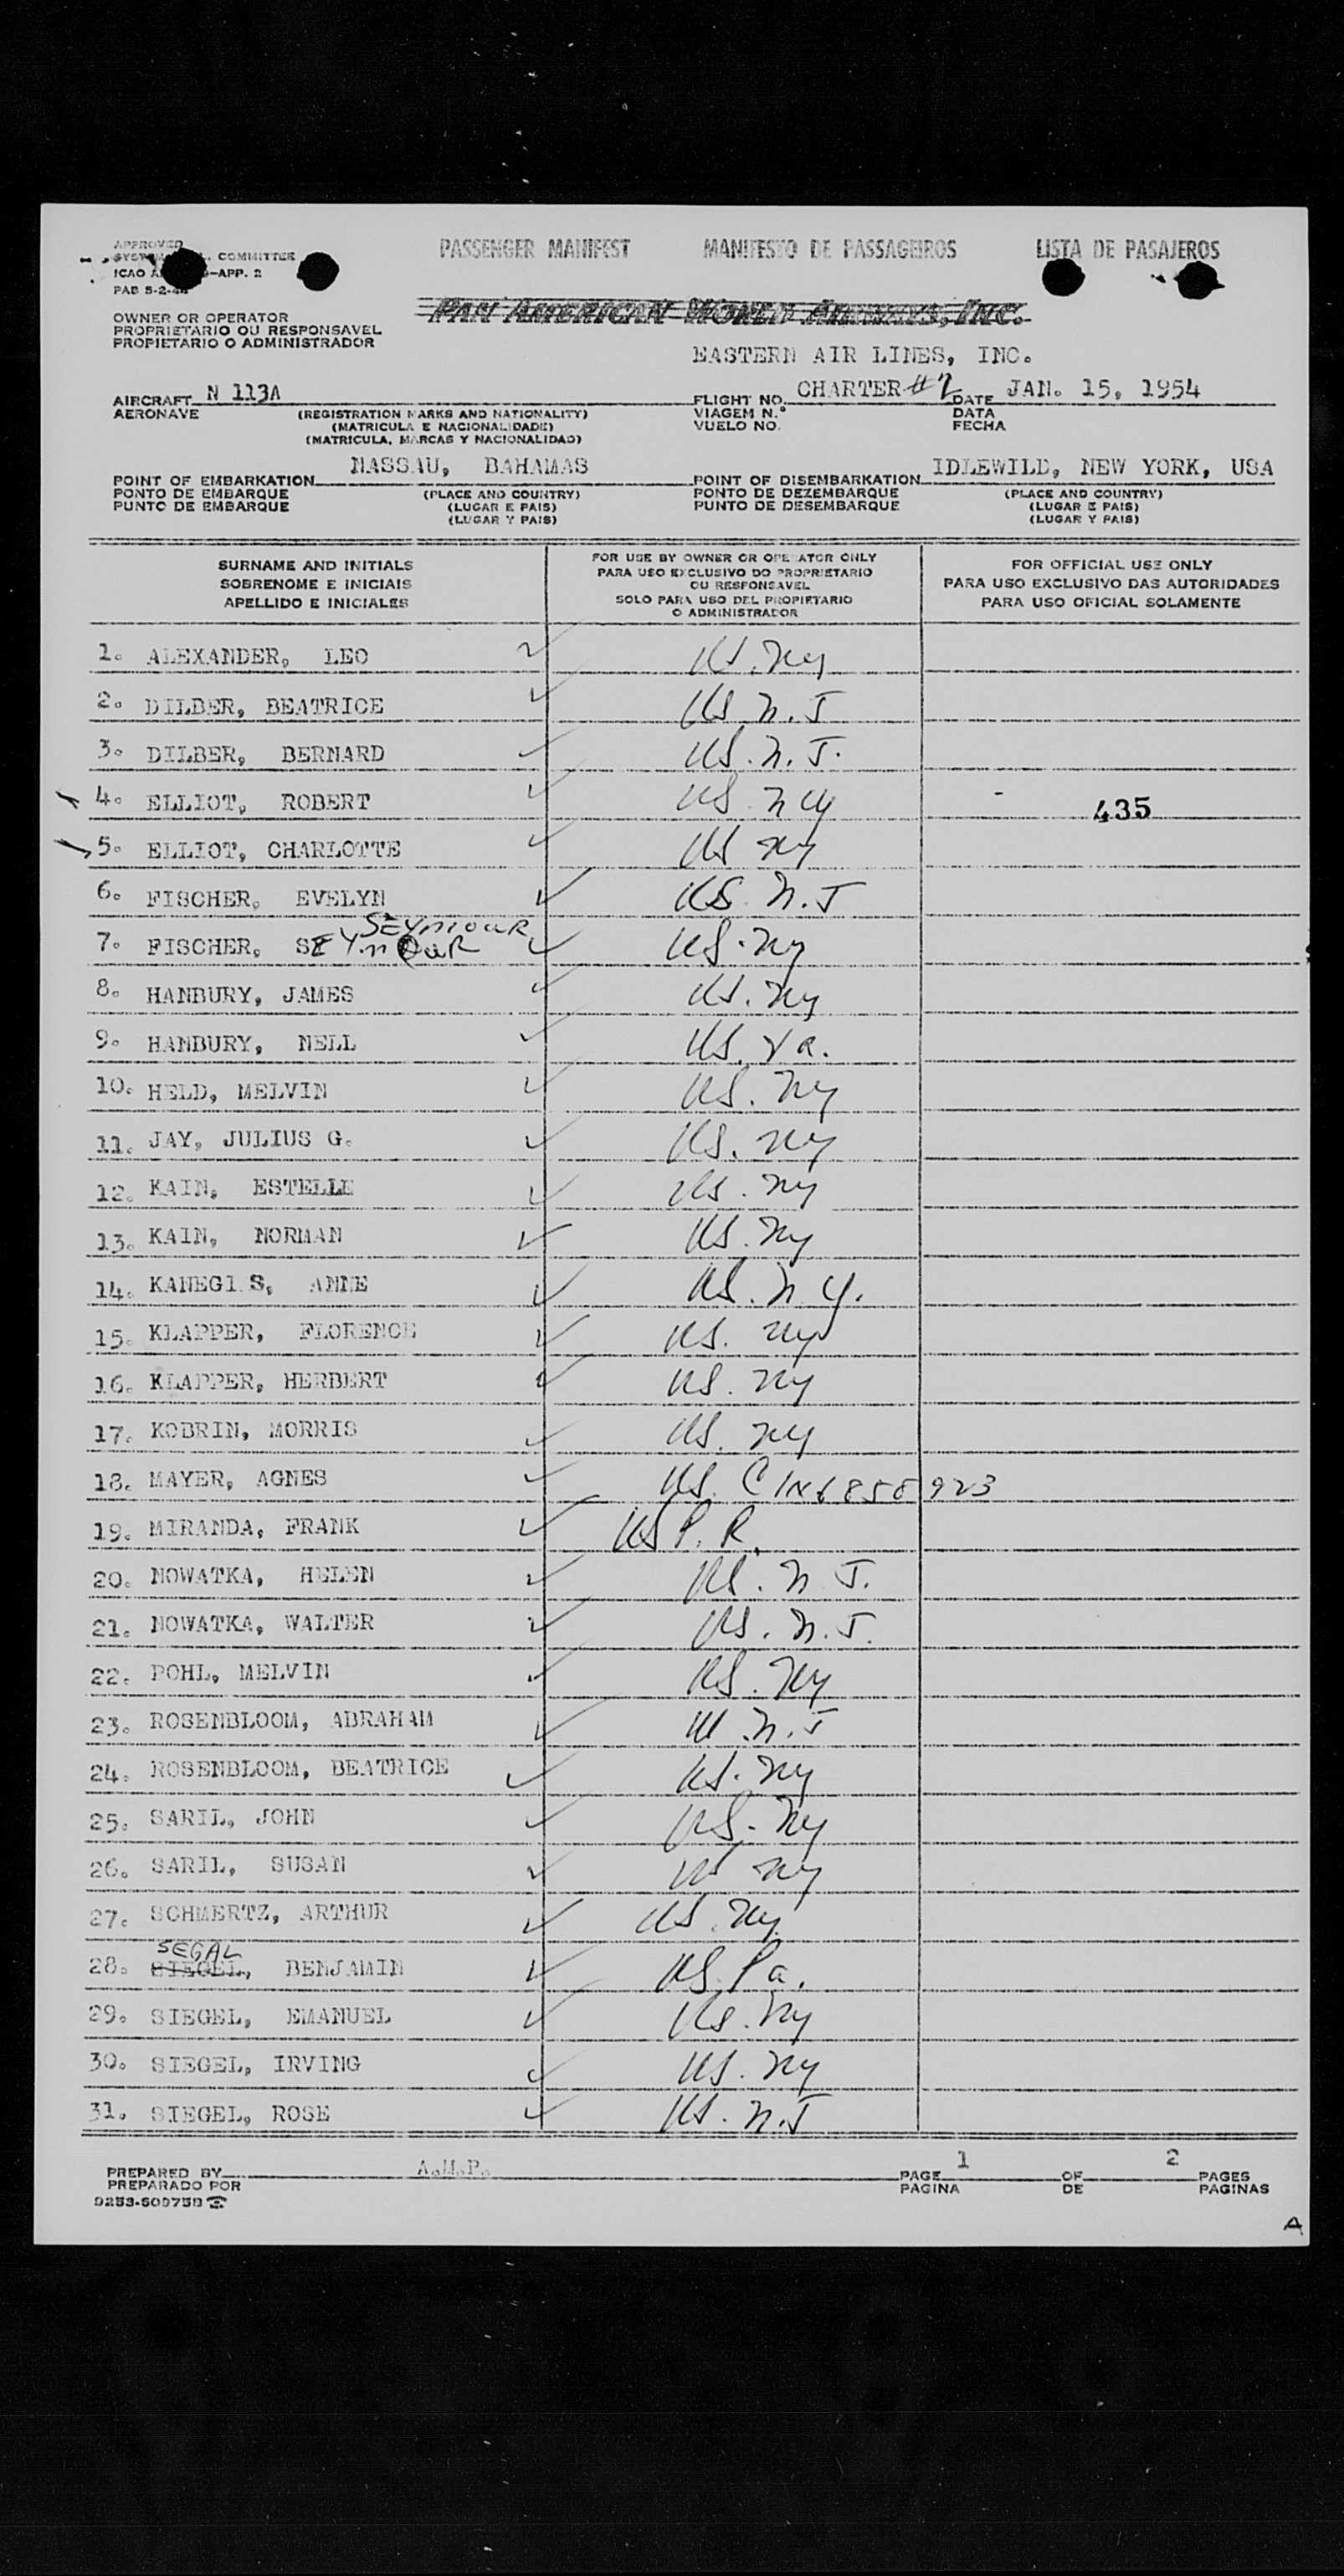 PASSENGER MANIFEST MANIFESTO DE PASSAGEIROS LISTA DE PASAJEROS
APPROVED
COMMITTEE
ICAO -APP. 2
PAB 5-2-
OWNER OR OPERATOR
PROPRIETARIO OU RESPONSAVEL
PROPIETARIO O ADMINISTRADOR
PAN AMERICAN WORLD AIRWAYS, INC.
EASTERN AIR LINES, INC.
AIRCRAFT N 113A FLIGHT NO. CHARTER #2 DATE JAN. 15, 1954
AERONAVE (REGISTRATION MARKS AND NATIONALITY) VIAGEM N.º DATA
(MATRICULA E NACIONALIDADE) VUELO NO. FECHA
(MATRICULA, MARCAS Y NACIONALIDAD)
POINT OF EMBARKATION NASSAU, BAHAMAS POINT OF DISEMBARKATION IDLEWILD, NEW YORK, USA
PONTO DE EMBARQUE (PLACE AND COUNTRY) PONTO DE DEZEMBARQUE (PLACE AND COUNTRY)
PUNTO DE EMBARQUE (LUGAR E PAIS) PUNTO DE DESEMBARQUE (LUGAR E PAIS)
(LUGAR Y PAIS) (LUGAR Y PAIS)
SURNAME AND INITIALS
SOBRENOME E INICIAIS
APELLIDO E INICIALES
FOR USE BY OWNER OR OPERATOR ONLY
PARA USO EXCLUSIVO DO PROPRIETARIO
OU RESPONSAVEL
SOLO PARA USO DEL PROPIETARIO
O ADMINISTRADOR
FOR OFFICIAL USE ONLY
PARA USO EXCLUSIVO DAS AUTORIDADES
PARA USO OFICIAL SOLAMENTE
1. ALEXANDER, LEO US. NY
2. DILBER, BEATRICE US N.J
3. DILBER, BERNARD US. N.J.
4. ELLIOT, ROBERT US NY 435
5. ELLIOT, CHARLOTTE US NY
6. FISCHER, EVELYN US. N.J
SEYMOUR
7. FISCHER, SEYMOUR US. NY
8. HANBURY, JAMES US. NY
9. HANBURY, NELL US. Va.
10. HELD, MELVIN US. NY
11. JAY, JULIUS G. US. NY
12. KAIN, ESTELLE US. NY
13. KAIN, NORMAN US. NY
14. KANEGI S, ANNE US. N.Y.
15. KLAPPER, FLORENCE US. NY
16. KLAPPER, HERBERT US. NY
17. KOBRIN, MORRIS US. NY
18. MAYER, AGNES US.
19. MIRANDA, FRANK US P.R.
20. NOWATKA, HELEN US. N J.
21. NOWATKA, WALTER US. N.J.
22. POHL, MELVIN US. NY
23. ROSENBLOOM, ABRAHAM US. N.J
24. ROSENBLOOM, BEATRICE US. NY
25. SARIL, JOHN US. NY
26. SARIL, SUSAN US NY
27. SCHMERTZ, ARTHUR US. NY
SEGAL
28. SIEGEL, BENJAMIN US. Pa.
29. SIEGEL, EMANUEL US. NY
30. SIEGEL, IRVING US. NY
31. SIEGEL, ROSE US. N.J
PREPARED BY A.M.P. PAGE 1 OF 2 PAGES
PREPARADO POR PAGINA DE PAGINAS
A